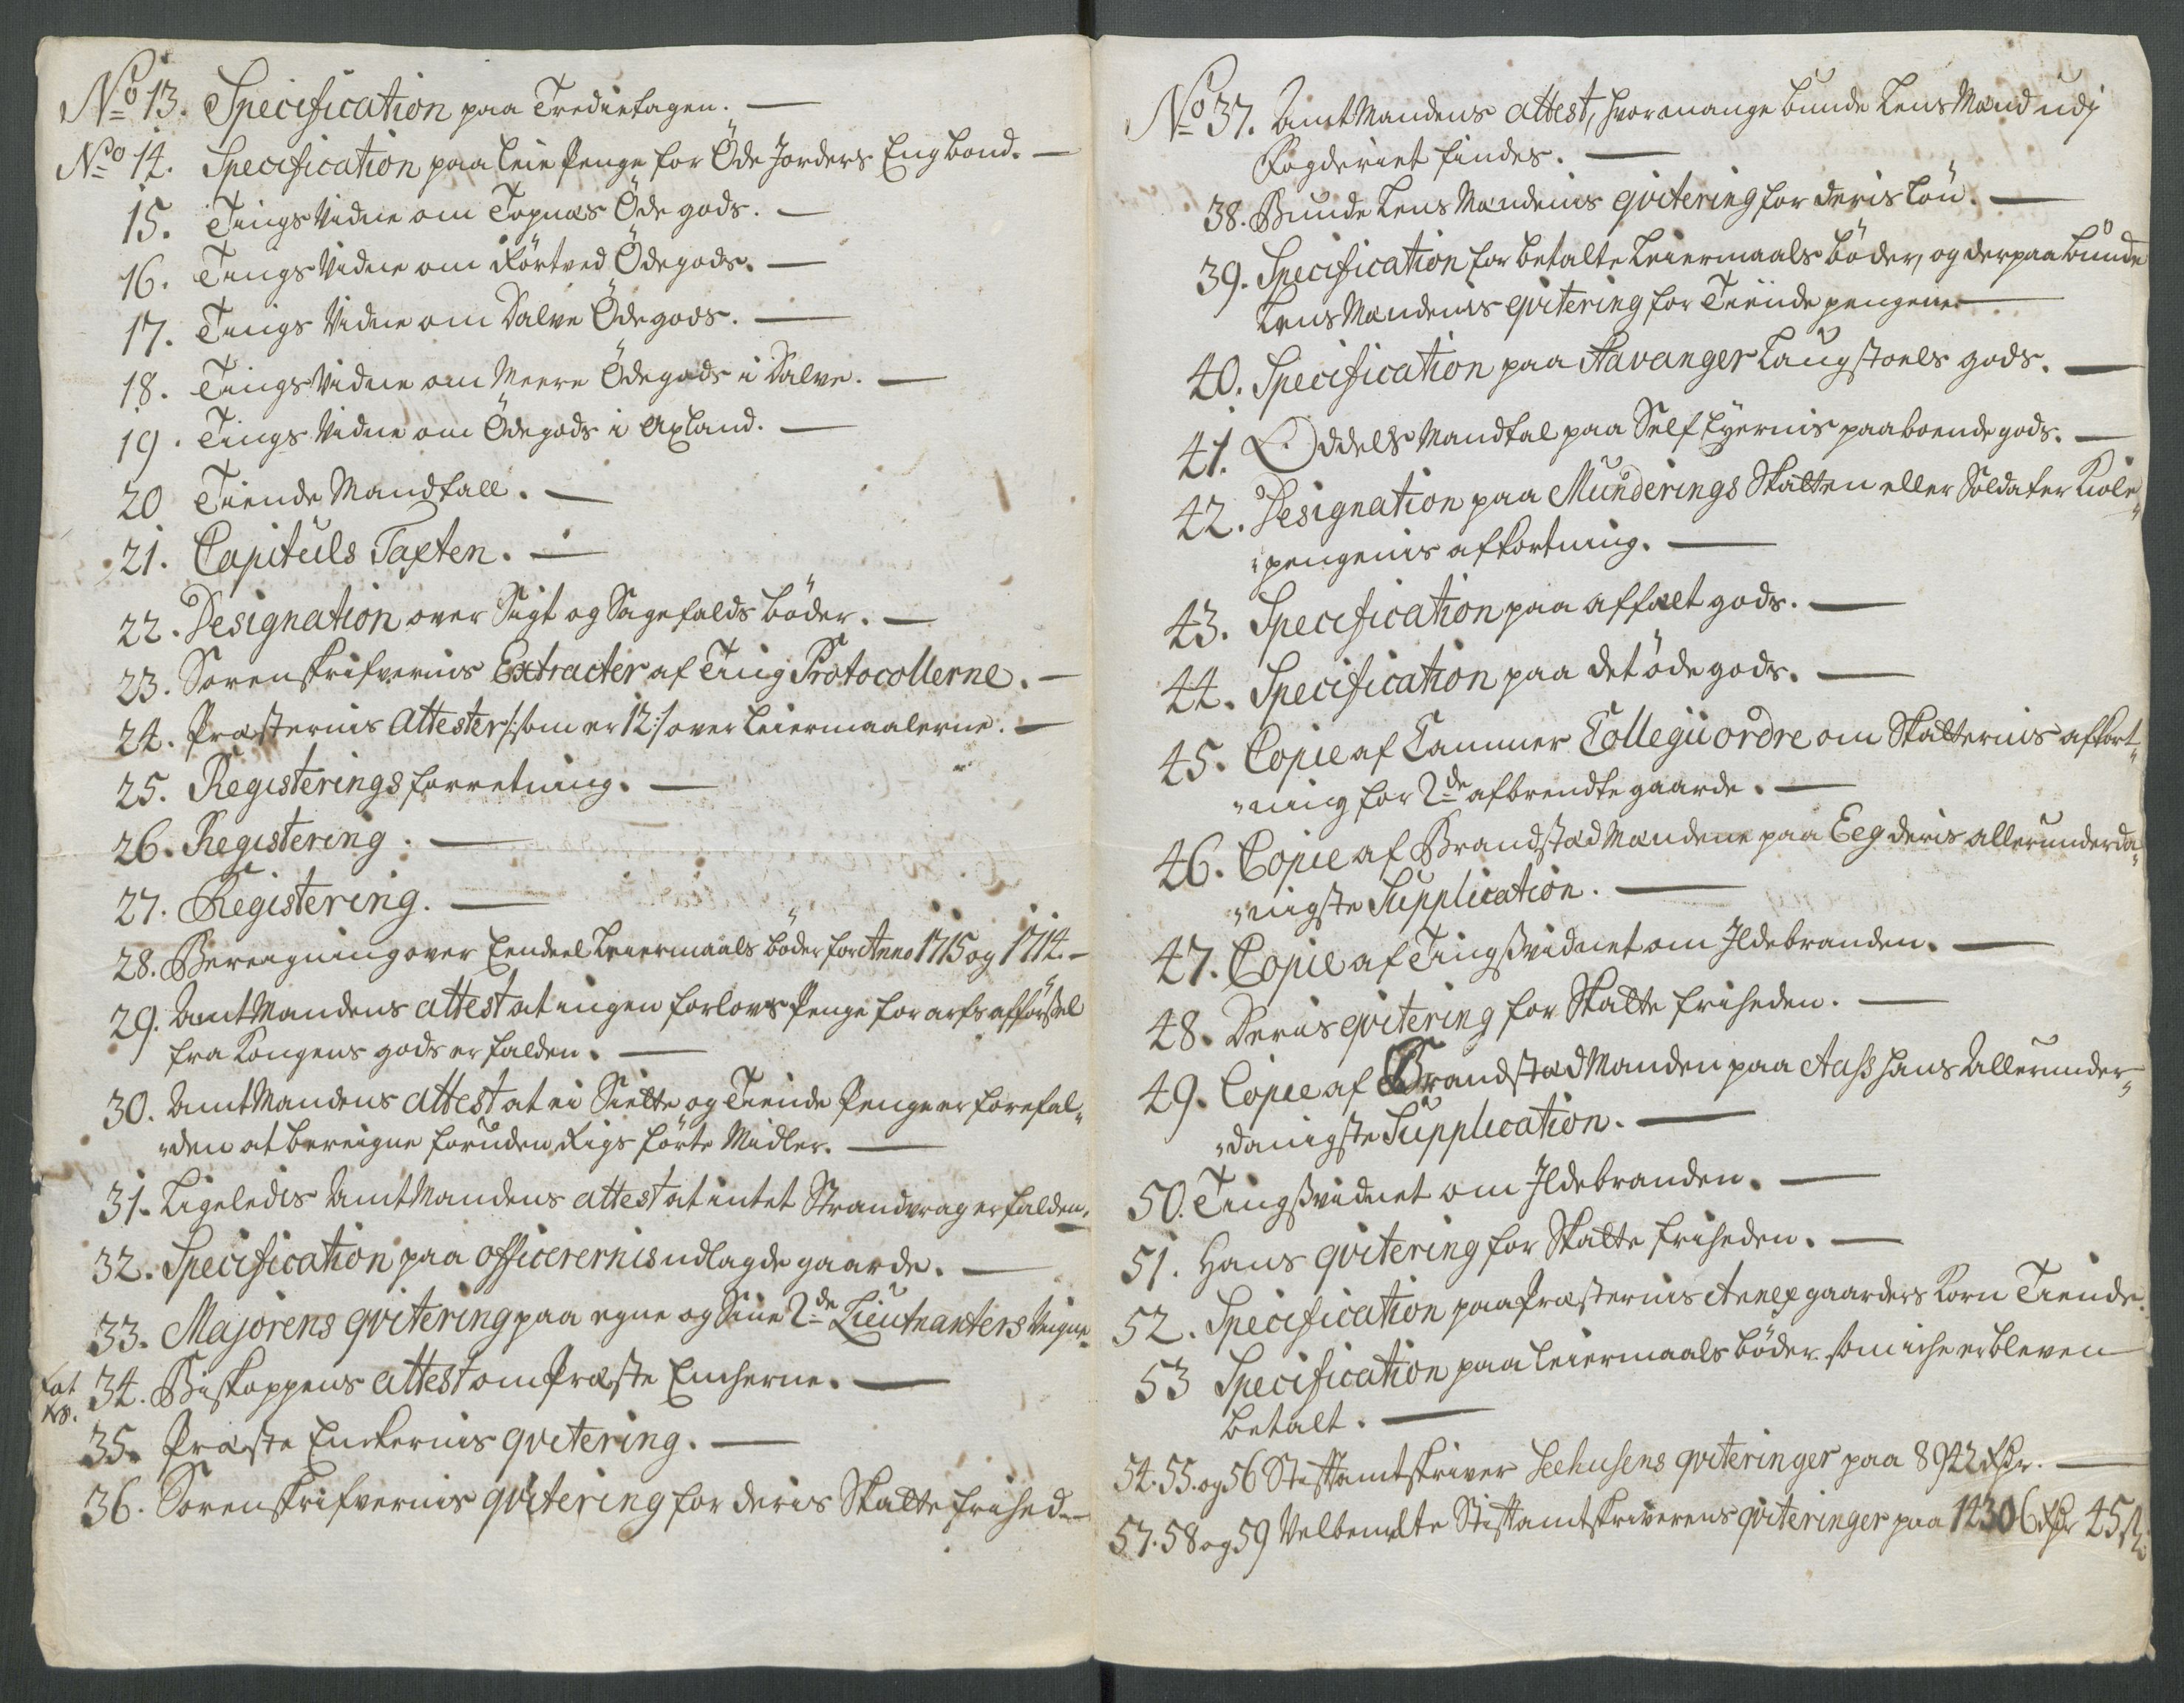 No 13. Specification paa Tredietagen.
No 14. Specification paa leie Penge for Öde Jorders Engbond.
15. Tings Vidne om Topnæs Öde gods.
16. Tings Vidne om Förtved Ödegods.
17. Tings Vidne om Dalene Ödegods.
18. Tings Vidne om Meere Ödegods i Dalene.
19. Tings Vidne om Ödegods i
20 Tiende Mandtall.
21. Capituls Taxten.
22. Designation over Sigt og Sagefalds böder.
23. Sorenskrifvernis Extracter af Ting Protocollerne.
24. Præsternis Attester /: som er 12 :/ over leiermaalerne.
25. Registerings forretning.
26. Registering.
27. Registering.
28. Beregning over Eendeel Leiermaals böder for Anno 1715 og 1714.
29. AmtMandens attest at ingen forlovs Penge for arfs afförsel
fra Kongens gods er falden.
30. AmtMandens attest at ei Siette og Tiende Penge er forefal-
den at bereigne foruden Rigs förte Midler.
31. Ligeledis AmtMandens attest at intet Strandvrag er falden.
32. Specification paa officerernis udlagde gaarde.
33. Majorens qvitering paa egne og Sine 2de Lieutnanters Veigne.
34. Biskoppens attest om Præste Encherne.
35. Præste Enckernis qvitering.
36. Sorenskrifvernis qvitering for deris Skatte frihed
No 37. AmtMandens attest, hvor mange bunde LensMænd udj
Fogderiet findes.
38. Bunde Lens Mændenis qvitering for deris lön.
39. Specification for betalte Leiermaals böder, og derpaa bunde
LensMændenis qvitering for Tiende pengene
40. Specification paa Stavanger Laugstoels gods.
41. Oddels Mandtal paa Self Eyernis paaboende gods.
42. Designation paa Munderings Skatten eller Soldater Kiole
pengenis afkortning.
43. Specification paa affælt gods.
44. Specification paa det öde gods.
45. Copie af Cammer Collegii ordre om Skatternis afkort-
ning for 2de afbrendte gaarde.
46. Copie af Brandstæd Mændene paa Eeg deris allerunderda-
nigste Supplication.
47. Copie af Tingsvidnet om Ildebranden.
48. Deris qvitering for Skatte friheden.
49. Copie af Brandstæd Manden paa Aass hans Allerunder-
danigste Supplication.
50. Tingsvidnet om Ildebranden.
51. Hans qvitering for Skatte friheden.
52. Specification paa Præsternis Annex gaarders Korn Tiende.
53 Specification paa leiermaals böder som iche er bleven
betalt.
54. 55. og 56 Stiftamtskriver Seehusens qviteringer paa 8942 Rdr.
57. 58 og 59 Velbemelte Stiftamtskriverens qviteringer paa 14306 Rdr 45 s.